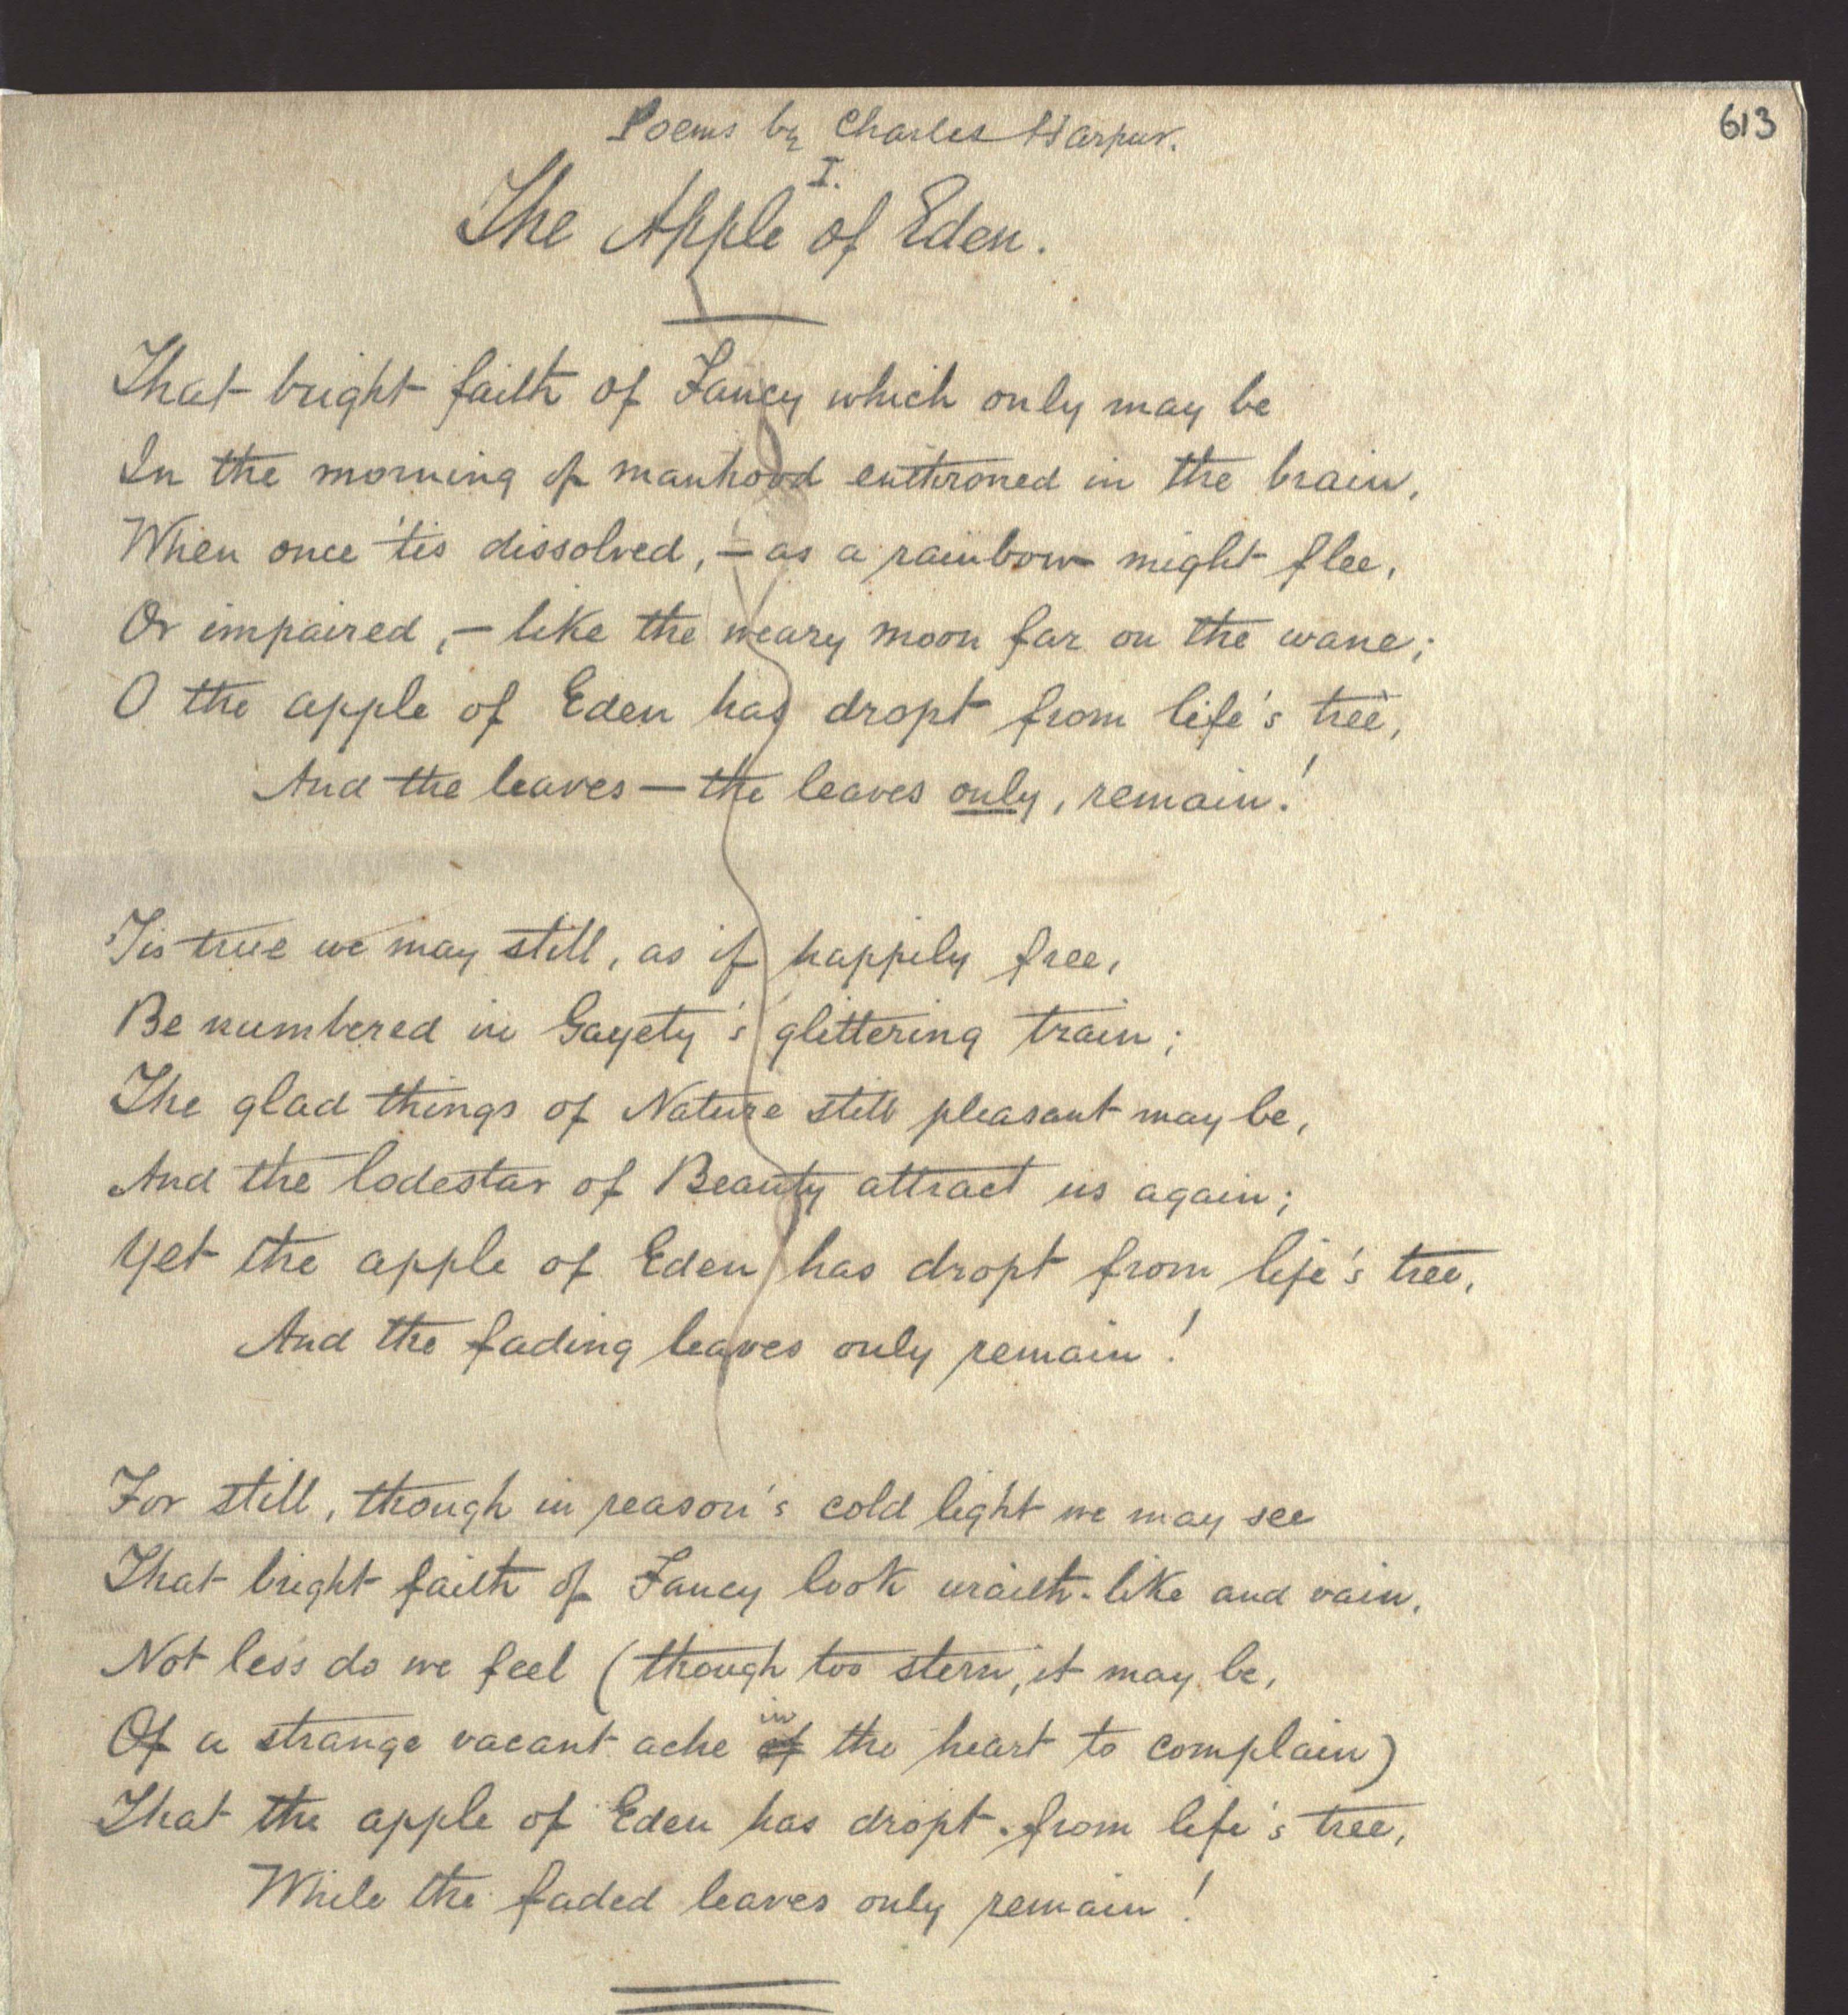 613
Poems by Charles Harpur.
I.
The Apple of Eden.
That bright faith of Fancy which only may be
In the morning of manhood enthroned in the brain,
When once 'tis dissolved, — as a rainbow might flee,
Or impaired, — like the weary moon far on the wane;
O the apple of Eden has dropt from life's tree,
And the leaves — the leaves only, remain!
'Tis true we may still, as if happily free,
Be numbered in Gayety's glittering train;
The glad things of Nature still pleasant may be,
And the lodestar of Beauty attract us again;
Yet the apple of Eden has dropt from life's tree,
And the fading leaves only remain!
For still, though in reason's cold light we may see
That bright faith of Fancy look wraith-like and vain,
Not less do we feel (though too stern, it may be,
Of a strange vacant ache of in the heart to complain)
That the apple of Eden has dropt from life's tree,
While the faded leaves only remain!